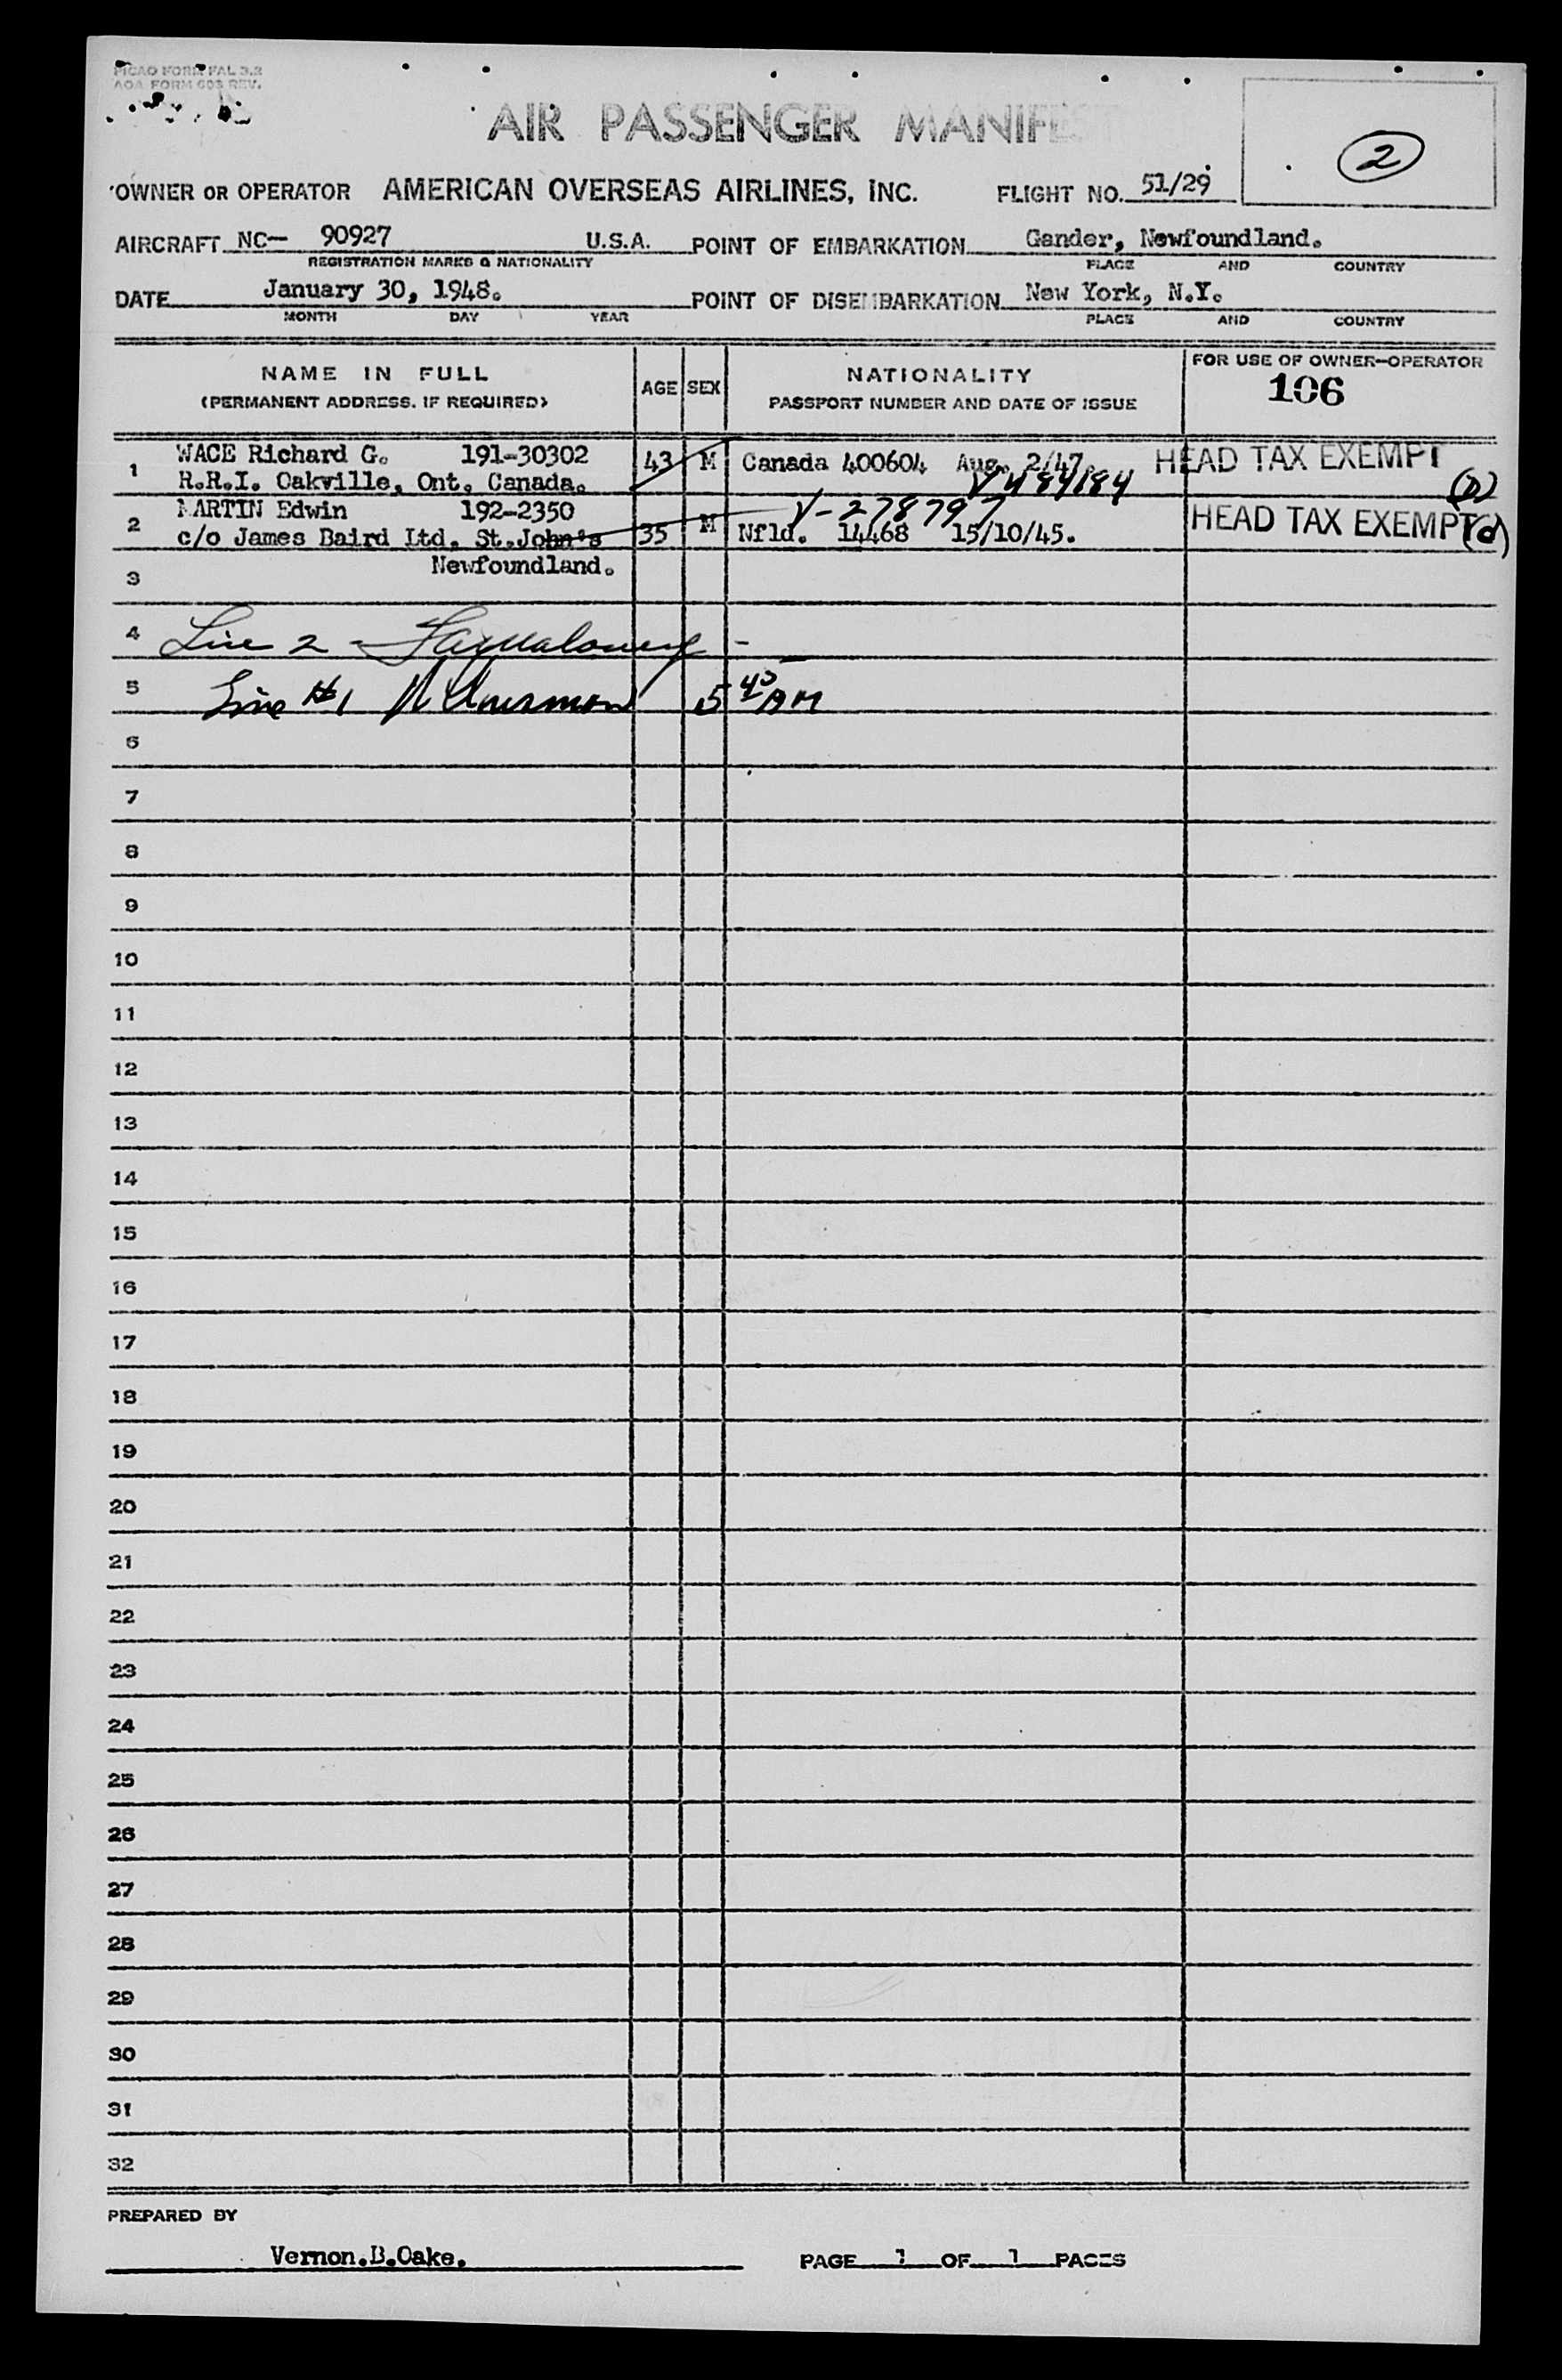 ICAO FORM FAL 3.2
AOA FORM 603 REV.
AIR PASSENGER MANIFEST
2
OWNER OR OPERATOR AMERICAN OVERSEAS AIRLINES, INC. FLIGHT NO. 51/29
AIRCRAFT NC- 90927 U.S.A. POINT OF EMBARKATION Gander, Newfoundland.
REGISTRATION MARKS & NATIONALITY PLACE AND COUNTRY
DATE January 30, 1948. POINT OF DISEMBARKATION New York, N.Y.
MONTH DAY YEAR PLACE AND COUNTRY
NAME IN FULL AGE SEX NATIONALITY FOR USE OF OWNER-OPERATOR
(PERMANENT ADDRESS, IF REQUIRED) PASSPORT NUMBER AND DATE OF ISSUE 106
1 WACE Richard G. 191-30302 43 M Canada 400604 Aug. 2/47. HEAD TAX EXEMPT
R.R.I. Oakville, Ont. Canada. V484184 (D)
2 MARTIN Edwin 192-2350 V-278797 HEAD TAX EXEMPT (d)
c/o James Baird Ltd. St.John's 35 M Nfld. 14468 15/10/45.
3 Newfoundland.
4 Line 2 -
5 Line #1 5 40 AM
6
7
8
9
10
11
12
13
14
15
16
17
18
19
20
21
22
23
24
25
26
27
28
29
30
31
32
PREPARED BY
Vernon.B.Oake. PAGE 1 OF 1 PAGES